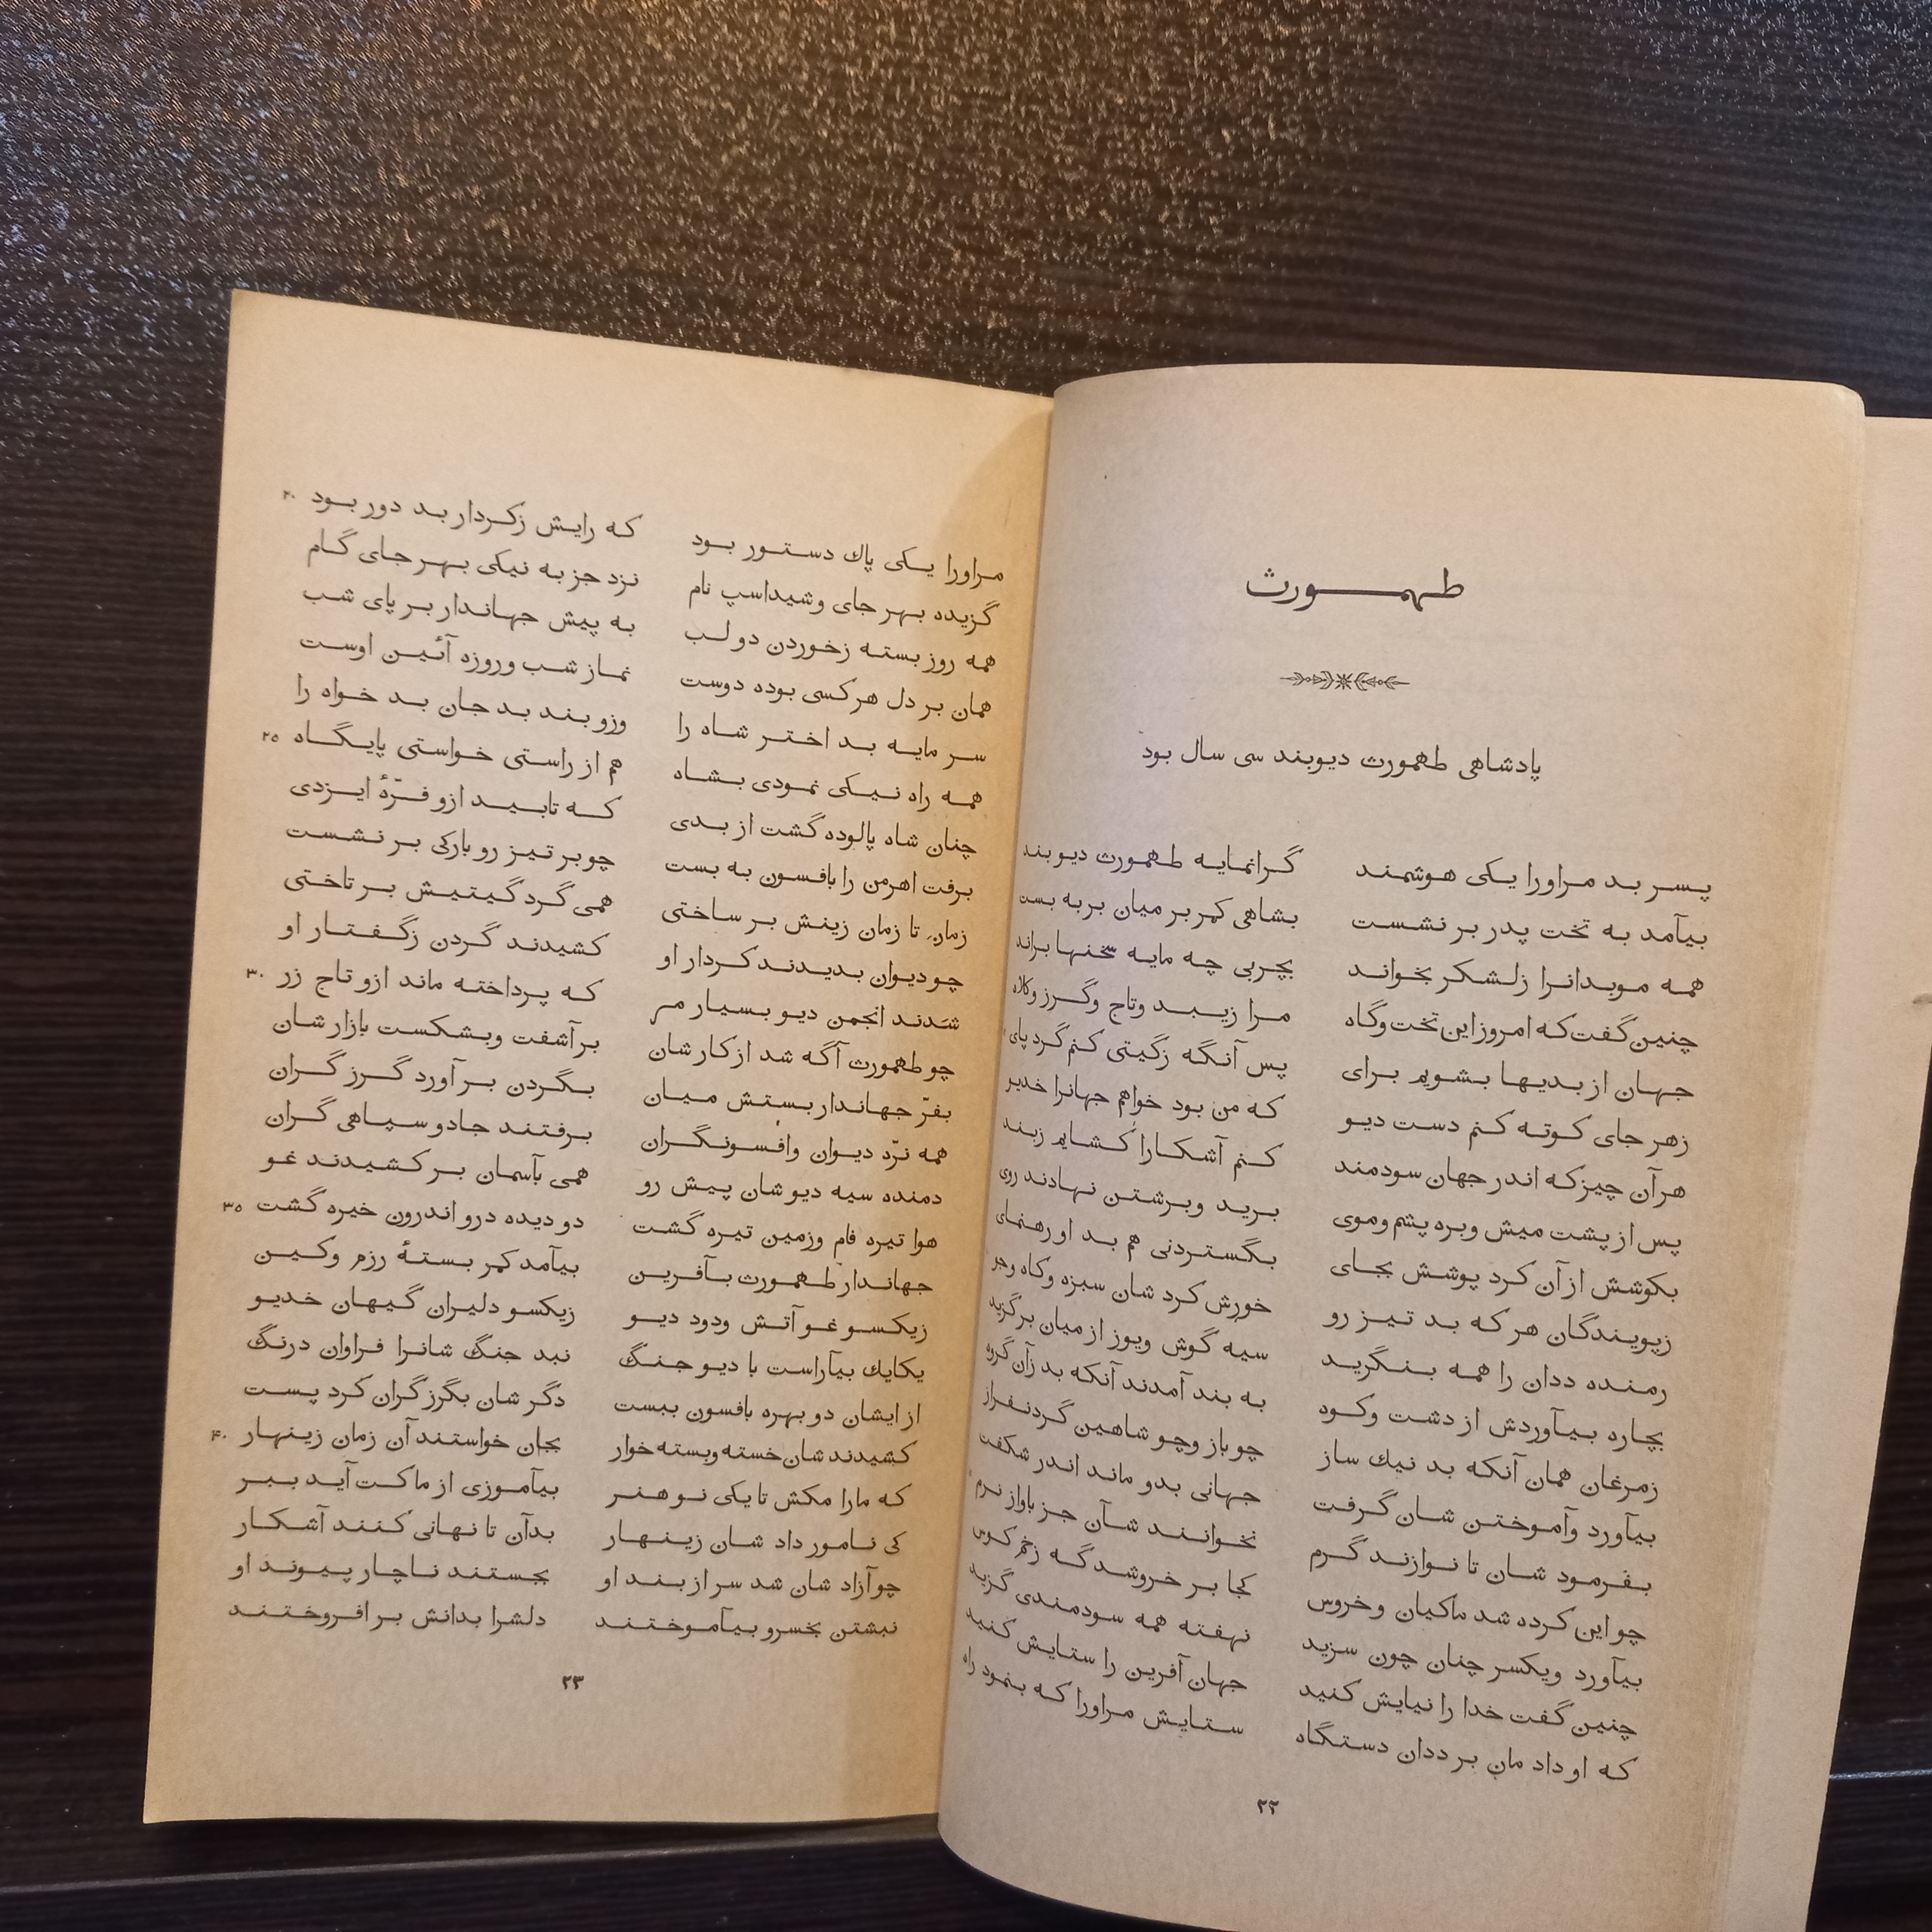 طهمورث
پادشاهی طهمورث دیوبند سی سال بود
پسر بد مراورا یکی هوشمند گرانمایه طهمورث دیوبند
بیآمد به تخت پدر بر نشست بشاهی کمر بر میان بر به بست
همه موبدانرا زلشکر بخواند بچربی چه مایه سخنها براند
چنین گفت که امروز این تخت وگاه مرا زیبد وتاج وگرز وکلاه
جهان از بدیها بشویم برای پس آنگه زگیتی کنم گرد پای
زهر جای کوته کنم دست دیو که من بود خواهم جهانرا خدیو
هر آن چیز که اندر جهان سودمند کنم آشکارا کشایم زبند
پس از پشت میش وبره پشم وموی برید وبرشتن نهادند روی
بکوشش از آن کرد پوشش بجای بگستردنی هم بد او رهنمای
زپویندگان هر که بد تیز رو خورش کرد شان سبزه وکاه وجو
رمنده ددان را همه بنگرید سیه گوش ویوز از میان برگزید
بچاره بیآوردش از دشت وکوه به بند آمدند آنکه بد زآن گروه
زمرغان همان آنکه بد نیك ساز چو باز وچو شاهین گردنفراز
بیآورد وآموختن شان گرفت جهانی بدو ماند اندر شکفت
بفرمود شان تا نوازند گرم نخوانند شآن جز بآواز نرم
چو این کرده شد ماکیان وخروس کجا بر خروشد گه زخم کوس
بیآورد ویکسر چنان چون سزید نهفته همه سودمندی گزید
چنین گفت خدا را نیایش کنید جهان آفرین را ستایش کنید
که او داد مان بر ددان دستگاه ستایش مراورا که بنمود راه
۲۲
مراورا یکی پاك دستور بود که رایش زکردار بد دور بود ۲۰
گزیده بهر جای وشیداسپ نام نزد جز به نیکی بهر جای گام
همه روز بسته زخوردن دو لب به پیش جهاندار بر پای شب
همان بر دل هر کسی بوده دوست نماز شب وروزه آئین اوست
سر مایه بد اختر شاه را وزو بند بد جان بد خواه را
همه راه نیکی نمودی بشاه هم از راستی خواستی پایگاه ۲۵
چنان شاه پالوده گشت از بدی که تابید ازو فرّهٔ ایزدی
برفت اهرمن را بافسون به بست چو بر تیز رو بارکی بر نشست
زمان تا زمان زینش بر ساختی همی گرد گیتیش بر تاختی
چو دیوان بدیدند کردار او کشیدند گردن زگفتار او
شدند انجمن دیو بسیار مر که پرداخته ماند ازو تاج زر ۳۰
چو طهمورث آگه شد از کار شان بر آشفت وبشکست بازار شان
بفرّ جهاندار بستش میان بگردن بر آورد گرز گران
همه نرّه دیوان وافسونگران برفتند جادو سپاهی گران
دمنده سیه دیو شان پیش رو همی بآسمان بر کشیدند غو
هوا تیره فام وزمین تیره گشت دو دیده درو اندرون خیره گشت ۳۵
جهاندار طهمورث بآفرین بیآمد کمر بستهٔ رزم وکین
زیکسو غو آتش ودود دیو زیکسو دلیران گیهان خدیو
یکایك بیآراست با دیو جنگ نبد جنگ شانرا فراوان درنگ
از ایشان دو بهره بافسون ببست دگر شان بگرز گران کرد پست
کشیدند شان خسته وبسته خوار بجان خواستند آن زمان زینهار ۴۰
که مارا مکش تا یکی نو هنر بیآموزی از ما کت آید ببر
کی نامور داد شان زینهار بدآن تا نهانی کنند آشکار
چو آزاد شان شد سر از بند او بجستند ناچار پیوند او
نبشتن بخسرو بیآموختند دلشرا بدانش بر افروختند
۲۳